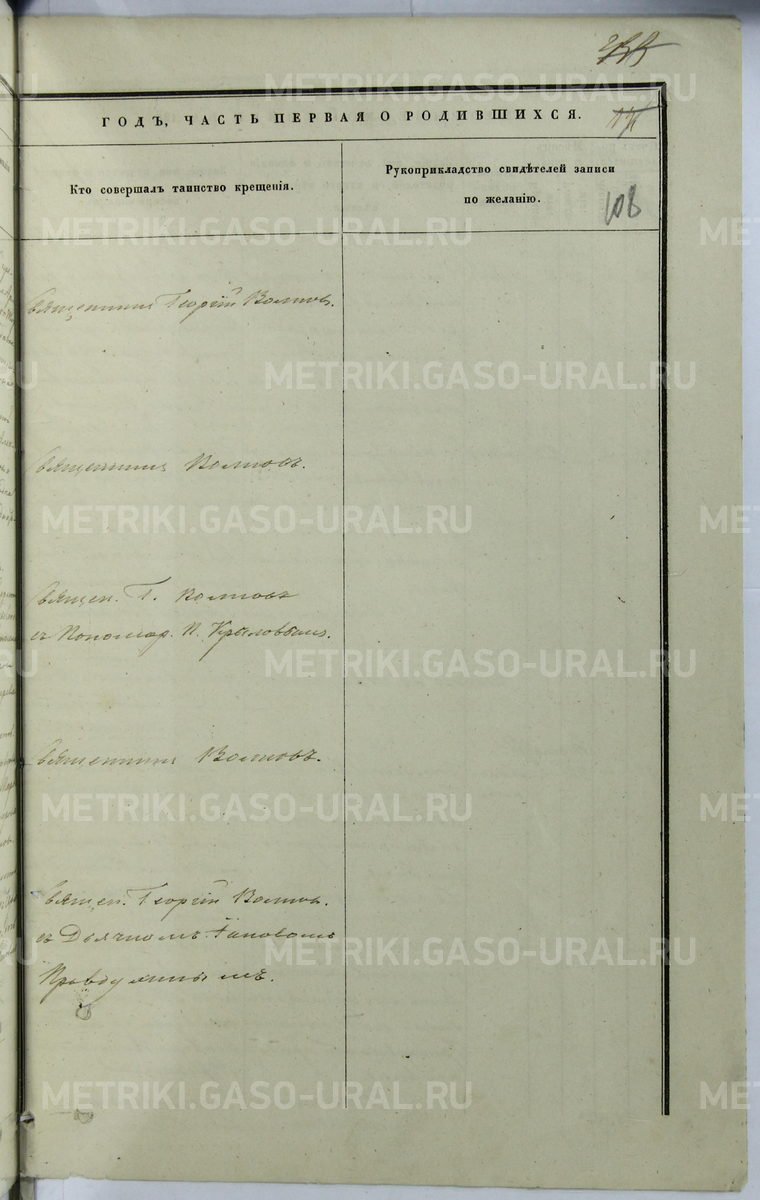 ГОДЪ, ЧАСТЬ ПЕРВАЯ О РОДИВШИХСЯ.
Кто совершалъ таинство крещенія.
Рукоприкладство свидѣтелей записи
по желанію.
108
Священникъ Георгій Волковъ.
Священникъ Волковъ.
Священ. Г. Волковъ
съ Пономар. П. Крыловымъ.
Священникъ Волковъ.
Священ. Георгій Волков.
съ Дьячкомъ
METRIKI.GASO-URAL.RU